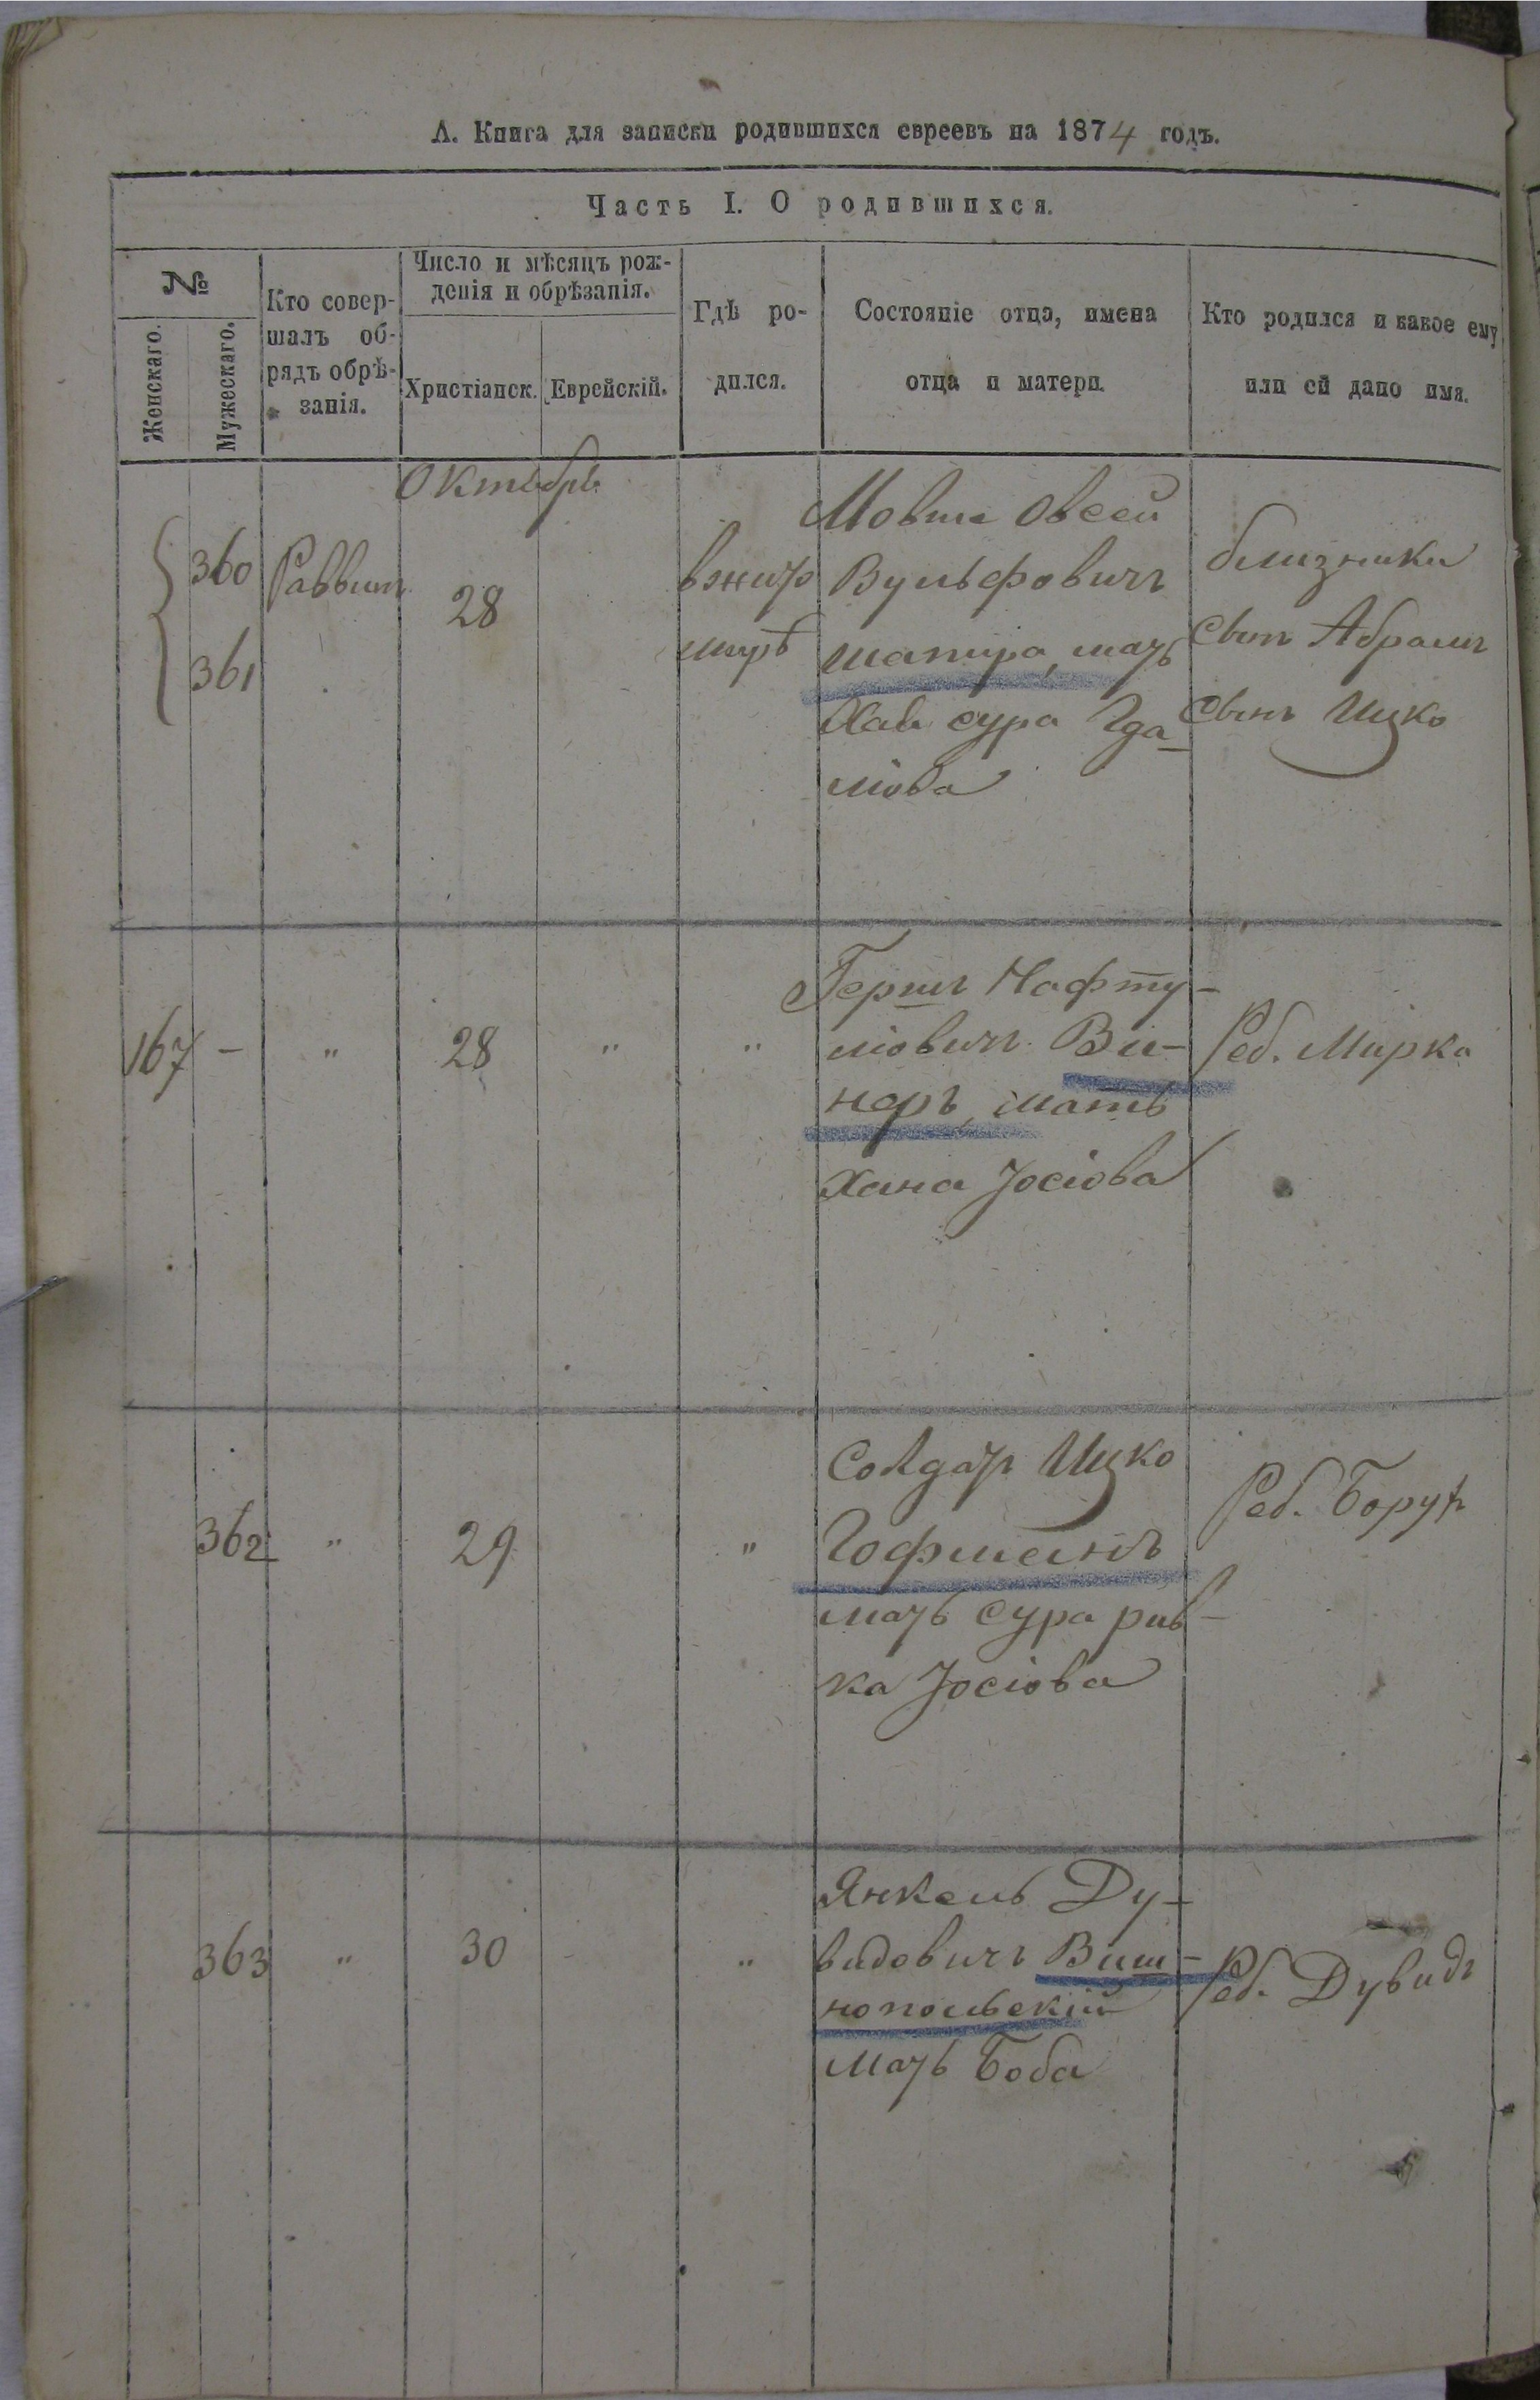 А. Книга для записки родившихся евреевъ на 1874 годъ.
Часть I. О родившихся.
№
Женскаго.
Мужескаго.
Кто совер-
шалъ об-
рядъ обрѣ-
занія.
Число и мѣсяцъ рож-
денія и обрѣзанія.
Христіанск.
Еврейскій.
Гдѣ ро-
дился.
Состояніе отца, имена
отца и матери.
Кто родился и какое ему
или ей дано имя.
Октябрь
360
361
Раввинъ
28
вжит
мирѣ
Мовша Овсей
Вульфовичъ
Шапира, мать
Хая сура Гда-
ліова
близники
Сынъ Абрамъ
Сынъ Ицко
167
–
"
28
"
"
Гершъ Нафту-
ліовичъ Ви-
неръ, мать
Хана Јосіова
Реб. Мирка
362
"
29
"
Солдатъ Ицко
Гофманъ
мать сура рив-
ка Јосіова
Реб. Борух
363
"
30
"
Янкель Ду-
видовичъ Виш-
нопольскій
мать Боба
Реб. Дувидъ